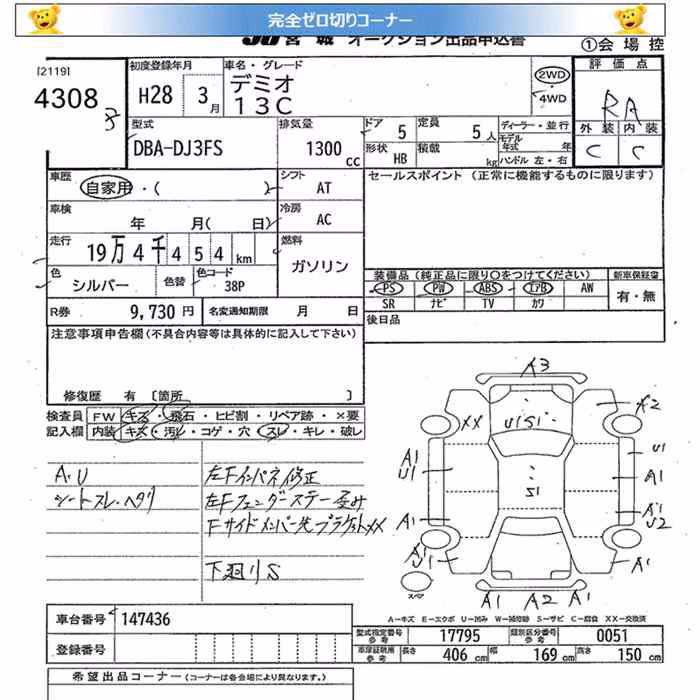 完全ゼロ切りコーナー
JU宮城 オークション出品申込書
①会場控
[2119]
4308
初度登録年月
H28 3月
車名・グレード
デミオ
13C
2WD
4WD
評価点
RA
外装 内装
C C
型式
DBA-DJ3FS
排気量
1300 cc
ドア 5
定員 5人
形状 HB
積載 kg
ディーラー・並行
モデル年式 年
ハンドル 左・右
車歴
自家用・( )
シフト AT
セールスポイント (正常に機能するものに限ります)
車検
年 月( 日)
冷房 AC
走行
19万4千454km
燃料
ガソリン
色
シルバー
色替
色コード
38P
装備品(純正品に限り○をつけてください)
新車保証書
PS PW ABS エアB AW
SR ナビ TV カワ
有・無
R券 9,730円
名変通知期限 月 日
後日品
注意事項申告欄(不具合内容等は具体的に記入して下さい)
修復歴 有 [箇所 ]
検査員記入欄
FW キズ・飛石・ヒビ割・リペア跡・×要
内装 キズ・汚レ・コゲ・穴・スレ・キレ・破レ
A・U
シートスレ・ヘタリ
左Fインパネ修正
左Fフェンダーステー歪み
Fサイドメンバー先ブラケットXX
下廻りS
A3
A2
XX
U1S1
A1
U1
U1
A1
S1
A1
A1
U2
A1
U1
A1
A1 A2 A1
スペア
A-キズ E-エクボ U-凹み W-補修跡 S-サビ C-腐食 XX-交換済
車台番号 147436
登録番号
型式指定番号 参考 17795
類別区分番号 参考 0051
車庫証明用 参考 長さ 406cm 幅 169cm 高さ 150cm
希望出品コーナー (コーナーは各会場により異なります。)